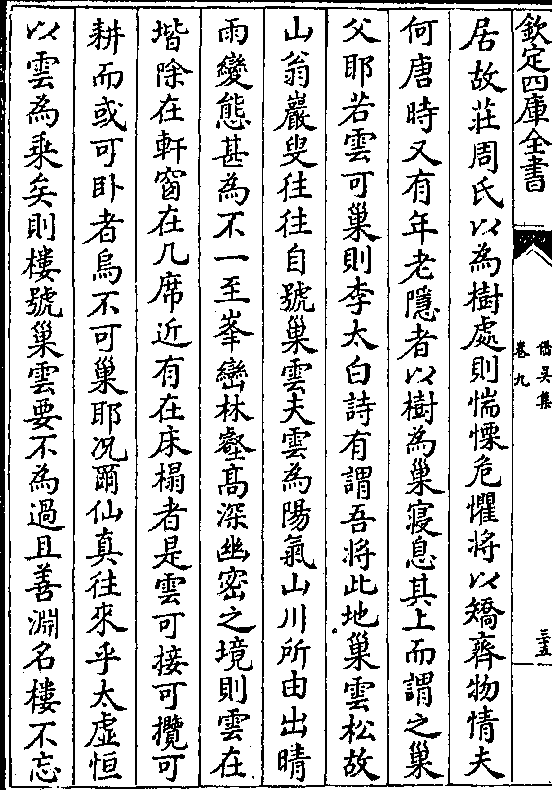 欽定四庫全書
僑吳集
卷九
三五
居故莊周氏以為樹處則惴慄危懼將以矯齊物情夫
何唐時又有年老隱者以樹為巢寢息其上而謂之巢
父耶若雲可巢則李太白詩有謂吾將此地巢雲松故
山翁巖叟往往自號巢雲夫雲為陽氣山川所由出晴
雨變態甚為不一至峯巒林壑髙深幽密之境則雲在
堦除在軒窗在几席近有在床榻者是雲可接可攬可
耕而或可卧者烏不可巢耶况爾仙真往來乎太虚恒
以雲為乗矣則樓號巢雲要不為過且善淵名樓不忘